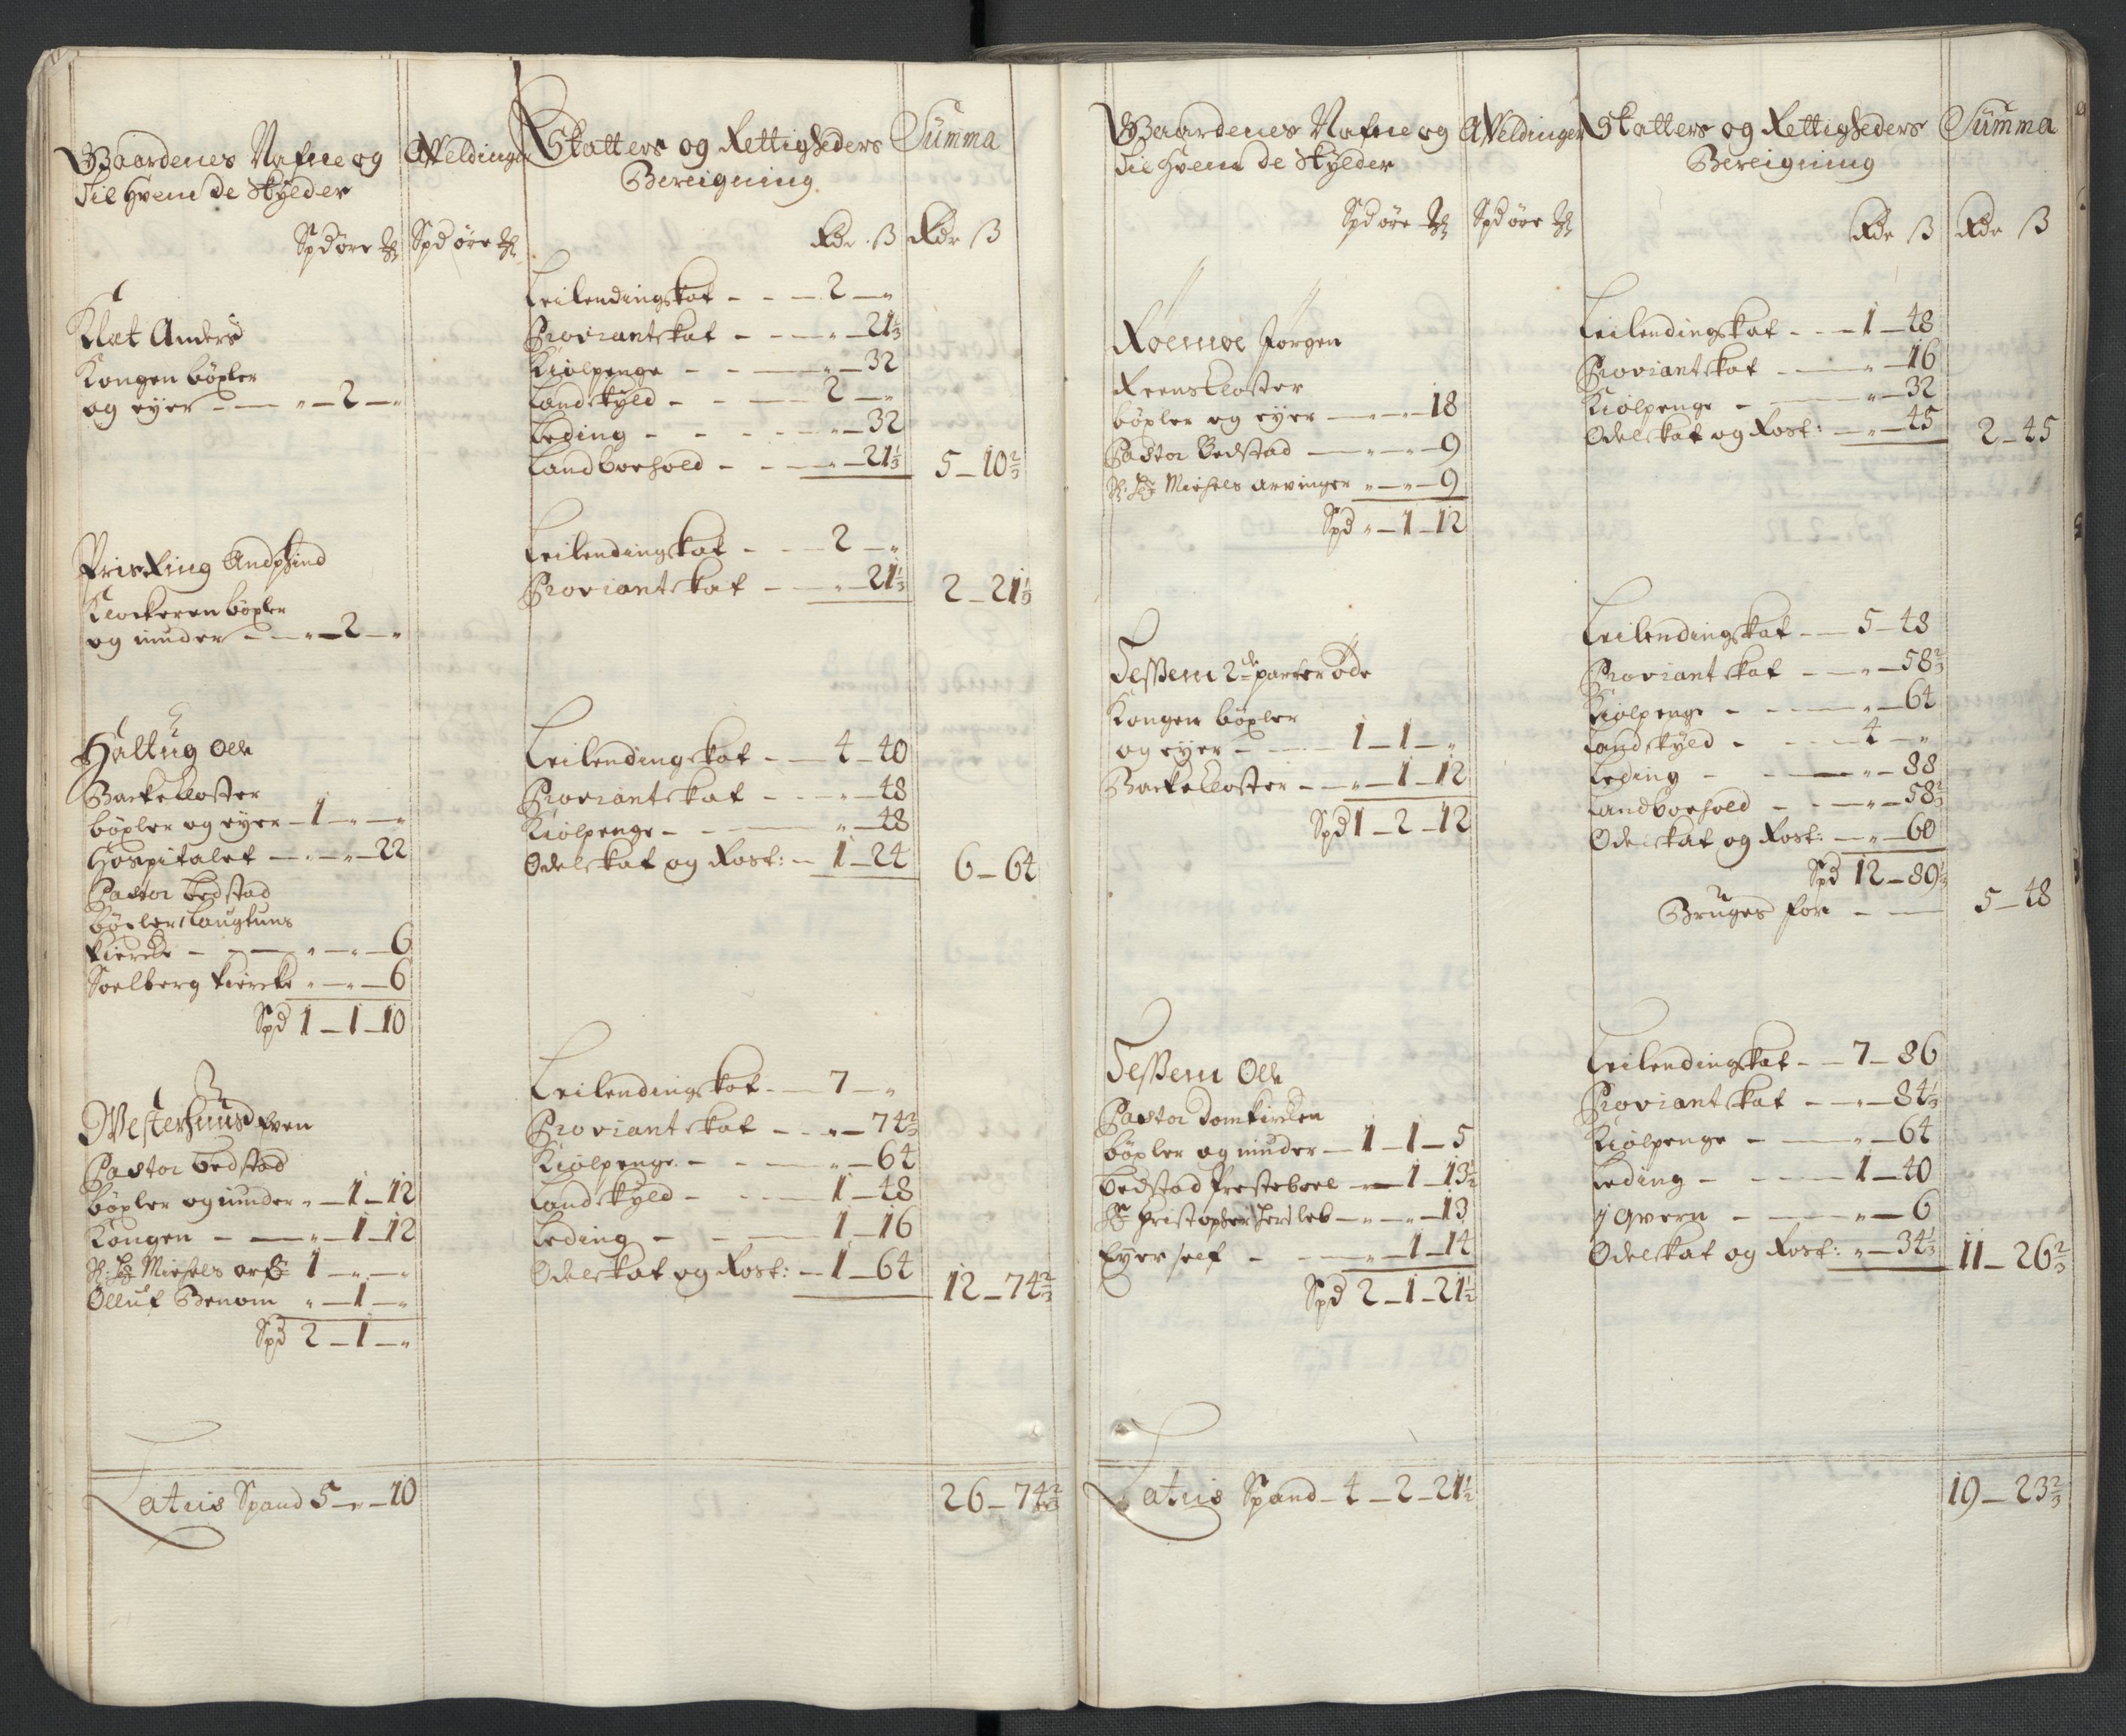 Gaardenes Nafne og
Til hvem de skylder
Afeldinger
Skatters og Rettigheders
Bereigning
Summa
Spd øre
Spd øre
Rdr ß
Rdr ß
Klæt Anders
Kongen böxler
og eyer - - " - 2 - "
Leilendingskat - - - 2 - "
Proviantskat - - - " - 21⅓
Kiølpenge - - - " - 32
Landskyld - - - 2 - "
Leding - - - - " - 32
Landboehold - - - " - 21⅓
5 - 10⅔
Andphind
Klockeren böxler
og inder - - " - 2 - "
Leilendingskat - - - 2 - "
Proviantskat - - - " - 21⅓
2 - 21⅓
Haltug Olle
Backe Closter
böxler og eyer - 1 - " - "
Hospitalet - " - " - 22
Pastor bedstad
böxler
Kiercke - - - " - " - 6
Soelberg Kiercke " - " - 6
Spd 1 - 1 - 10
Leilendingskat - - 4 - 40
Proviantskat - - - " - 48
Kiølpenge - - - " - 48
Odelskat og Rost: - 1 - 24
6 - 64
Westerhuus Even
Pastor bedstad
böxler og inder " - 1 - 12
Kongen - - " - 1 - 12
Miehels arf: 1 - " - "
Olluf Benom " - 1 - "
Spd 2 - 1 - "
Leilendingskat - - 7 - "
Proviantskat - - " - 74⅔
Kiølpenge - - - " - 64
Landskyld - - - 1 - 48
Leding - - - 1 - 16
Odelskat og Rost: - 1 - 64
12 - 74⅔
Latus Spand 5 - " - 10
26 - 74⅔
Gaardenes Nafne og
Til hvem de skylder
Afeldinger
Skatters og Rettigheders
Bereigning
Summa
Spd øre
Spd øre
Rdr ß
Rdr ß
Røemoe Jørgen
Reens Closter
böxler og eyer - " - " - 18
Pastor Bedstad - " - " - 9
Miehels arvinger " - " - 9
Spd " - 1 - 12
Leilendingskat - - - 1 - 48
Proviantskat - - - " - 16
Kiølpenge - - - " - 32
Odelskat og Rost: - " - 45
2 - 45
Tessem 2de parter øde
Kongen böxler
og eyer - - - 1 - 1 - "
Backe Closter - " - 1 - 12
Spd 1 - 2 - 12
Leilendingskat - - 5 - 48
Proviantskat - - " - 58⅔
Kiølpenge - - - " - 64
Landskyld - - - 4 - "
Leding - - - " - 88
Landboehold - - " - 58⅔
Odelskat og Rost: - " - 60
Spd 12 - 89⅓
Bruges for - -
5 - 48
Tessem Olle
Pastor Domkircken
böxler og inder - 1 - 1 - 5
Bedstad Presteboel - " - 1 - 13½
Christopher Hersleb - " - " - 13
Eyer self - - " - 1 - 14
Spd 2 - 1 - 21½
Leilendingskat - - 7 - 86
Proviantskat - - " - 84⅓
Kiølpenge - - " - 64
Leding - - - 1 - 40
1 qvern - - " - 6
Odelskat og Rost: " - 34⅓
11 - 26⅔
Latus Spand - 4 - 2 - 21½
19 - 23⅔